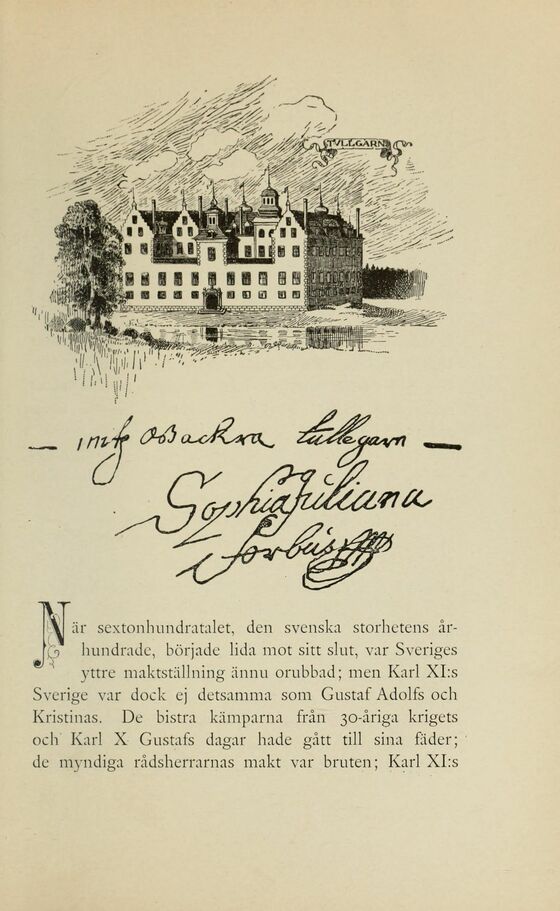 TVLLGARN
— mitz wackra tullegarn —
Sophia Juliana
Forbus
När sextonhundratalet, den svenska storhetens år-
hundrade, började lida mot sitt slut, var Sveriges
yttre maktställning ännu orubbad; men Karl XI:s
Sverige var dock ej detsamma som Gustaf Adolfs och
Kristinas. De bistra kämparna från 30-åriga krigets
och Karl X Gustafs dagar hade gått till sina fäder;
de myndiga rådsherrarnas makt var bruten; Karl XI:s